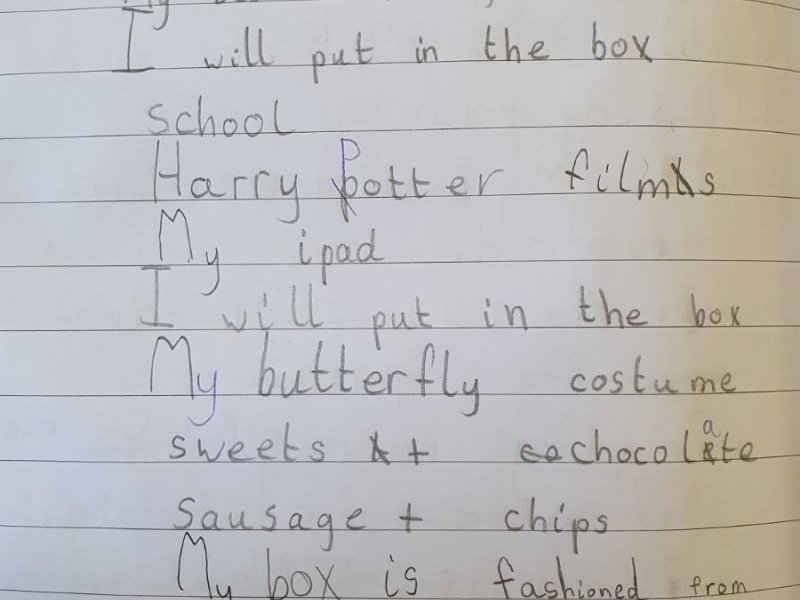 I will put in the box
school
Harry Potter films
My ipad
I will put in the box
My butterfly costume
sweets + chocolate
Sausage + chips
My box is fashioned from